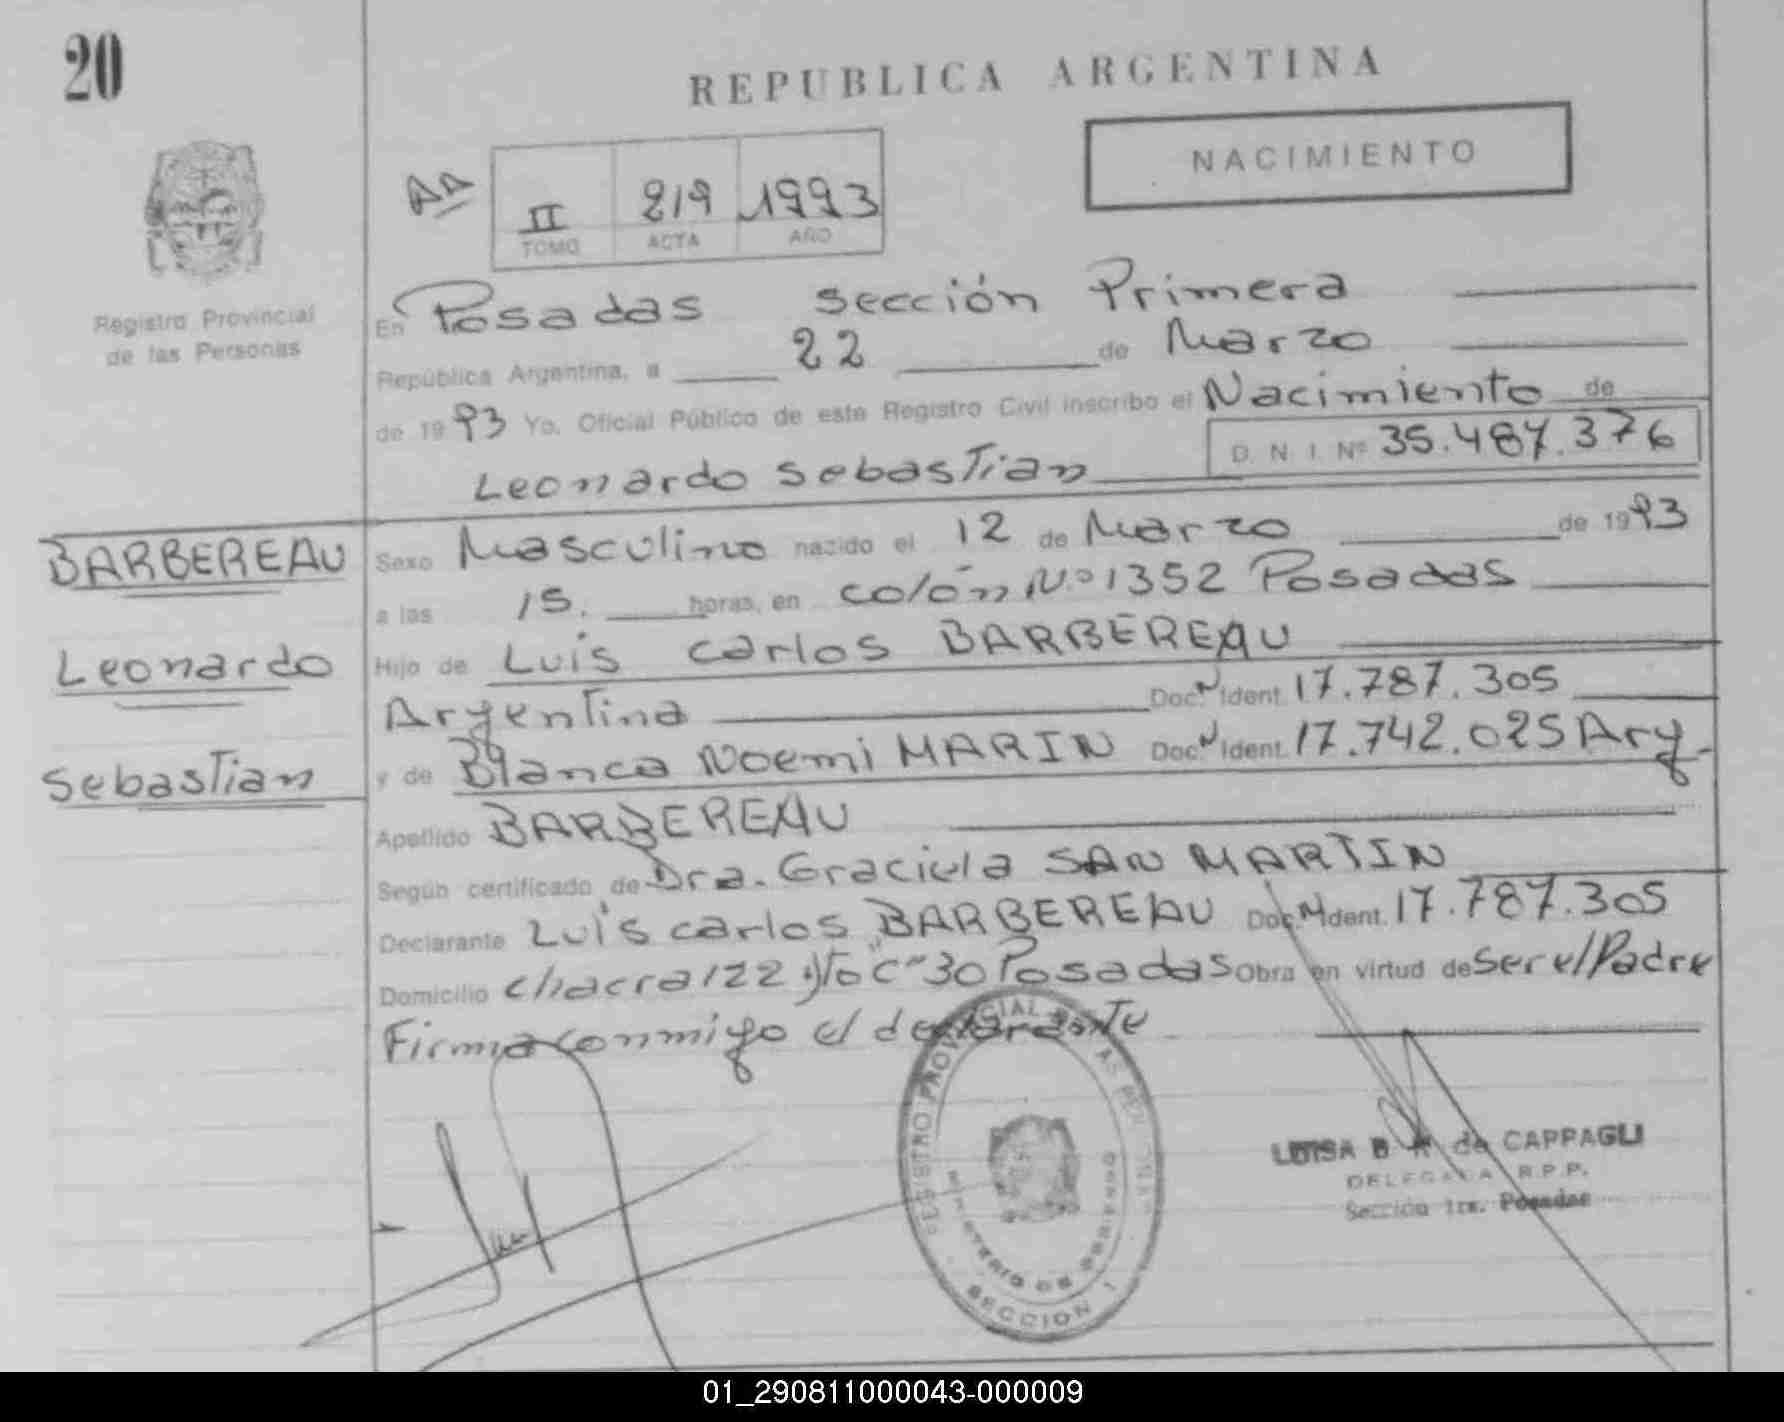 20
REPUBLICA ARGENTINA
NACIMIENTO
AA
II 219 1993
TOMO ACTA AÑO
Registro Provincial
de las Personas
En Posadas sección Primera
República Argentina, a 22 de Marzo
de 1993 Yo, Oficial Público de este Registro Civil inscribo el Nacimiento de
D. N. I. Nº 35.487.376
Leonardo Sebastian
BARBEREAU
Leonardo
Sebastian
Sexo Masculino nacido el 12 de Marzo de 1993
a las 15. horas, en colón N.º 1352 Posadas
Hijo de Luis Carlos BARBEREAU
Argentina Doc. N Ident. 17.787.305
y de Blanca Noemi MARIN Doc. N Ident. 17.742.025 Arg.
Apellido BARBEREAU
Según certificado de Dra. Graciela SAN MARTIN
Declarante Luis Carlos BARBEREAU Doc. N Ident. 17.787.305
Domicilio chacra 122 "C" 30 Posadas Obra en virtud de Ser el Padre
Firma conmigo el declarante
REGISTRO PROVINCIAL DE LAS PERSONAS
MINISTERIO DE GOBIERNO
SECCION 1
LUISA B de CAPPAGLI
DELEGADA R.P.P.
Sección 1ra. Posadas
01_290811000043-000009